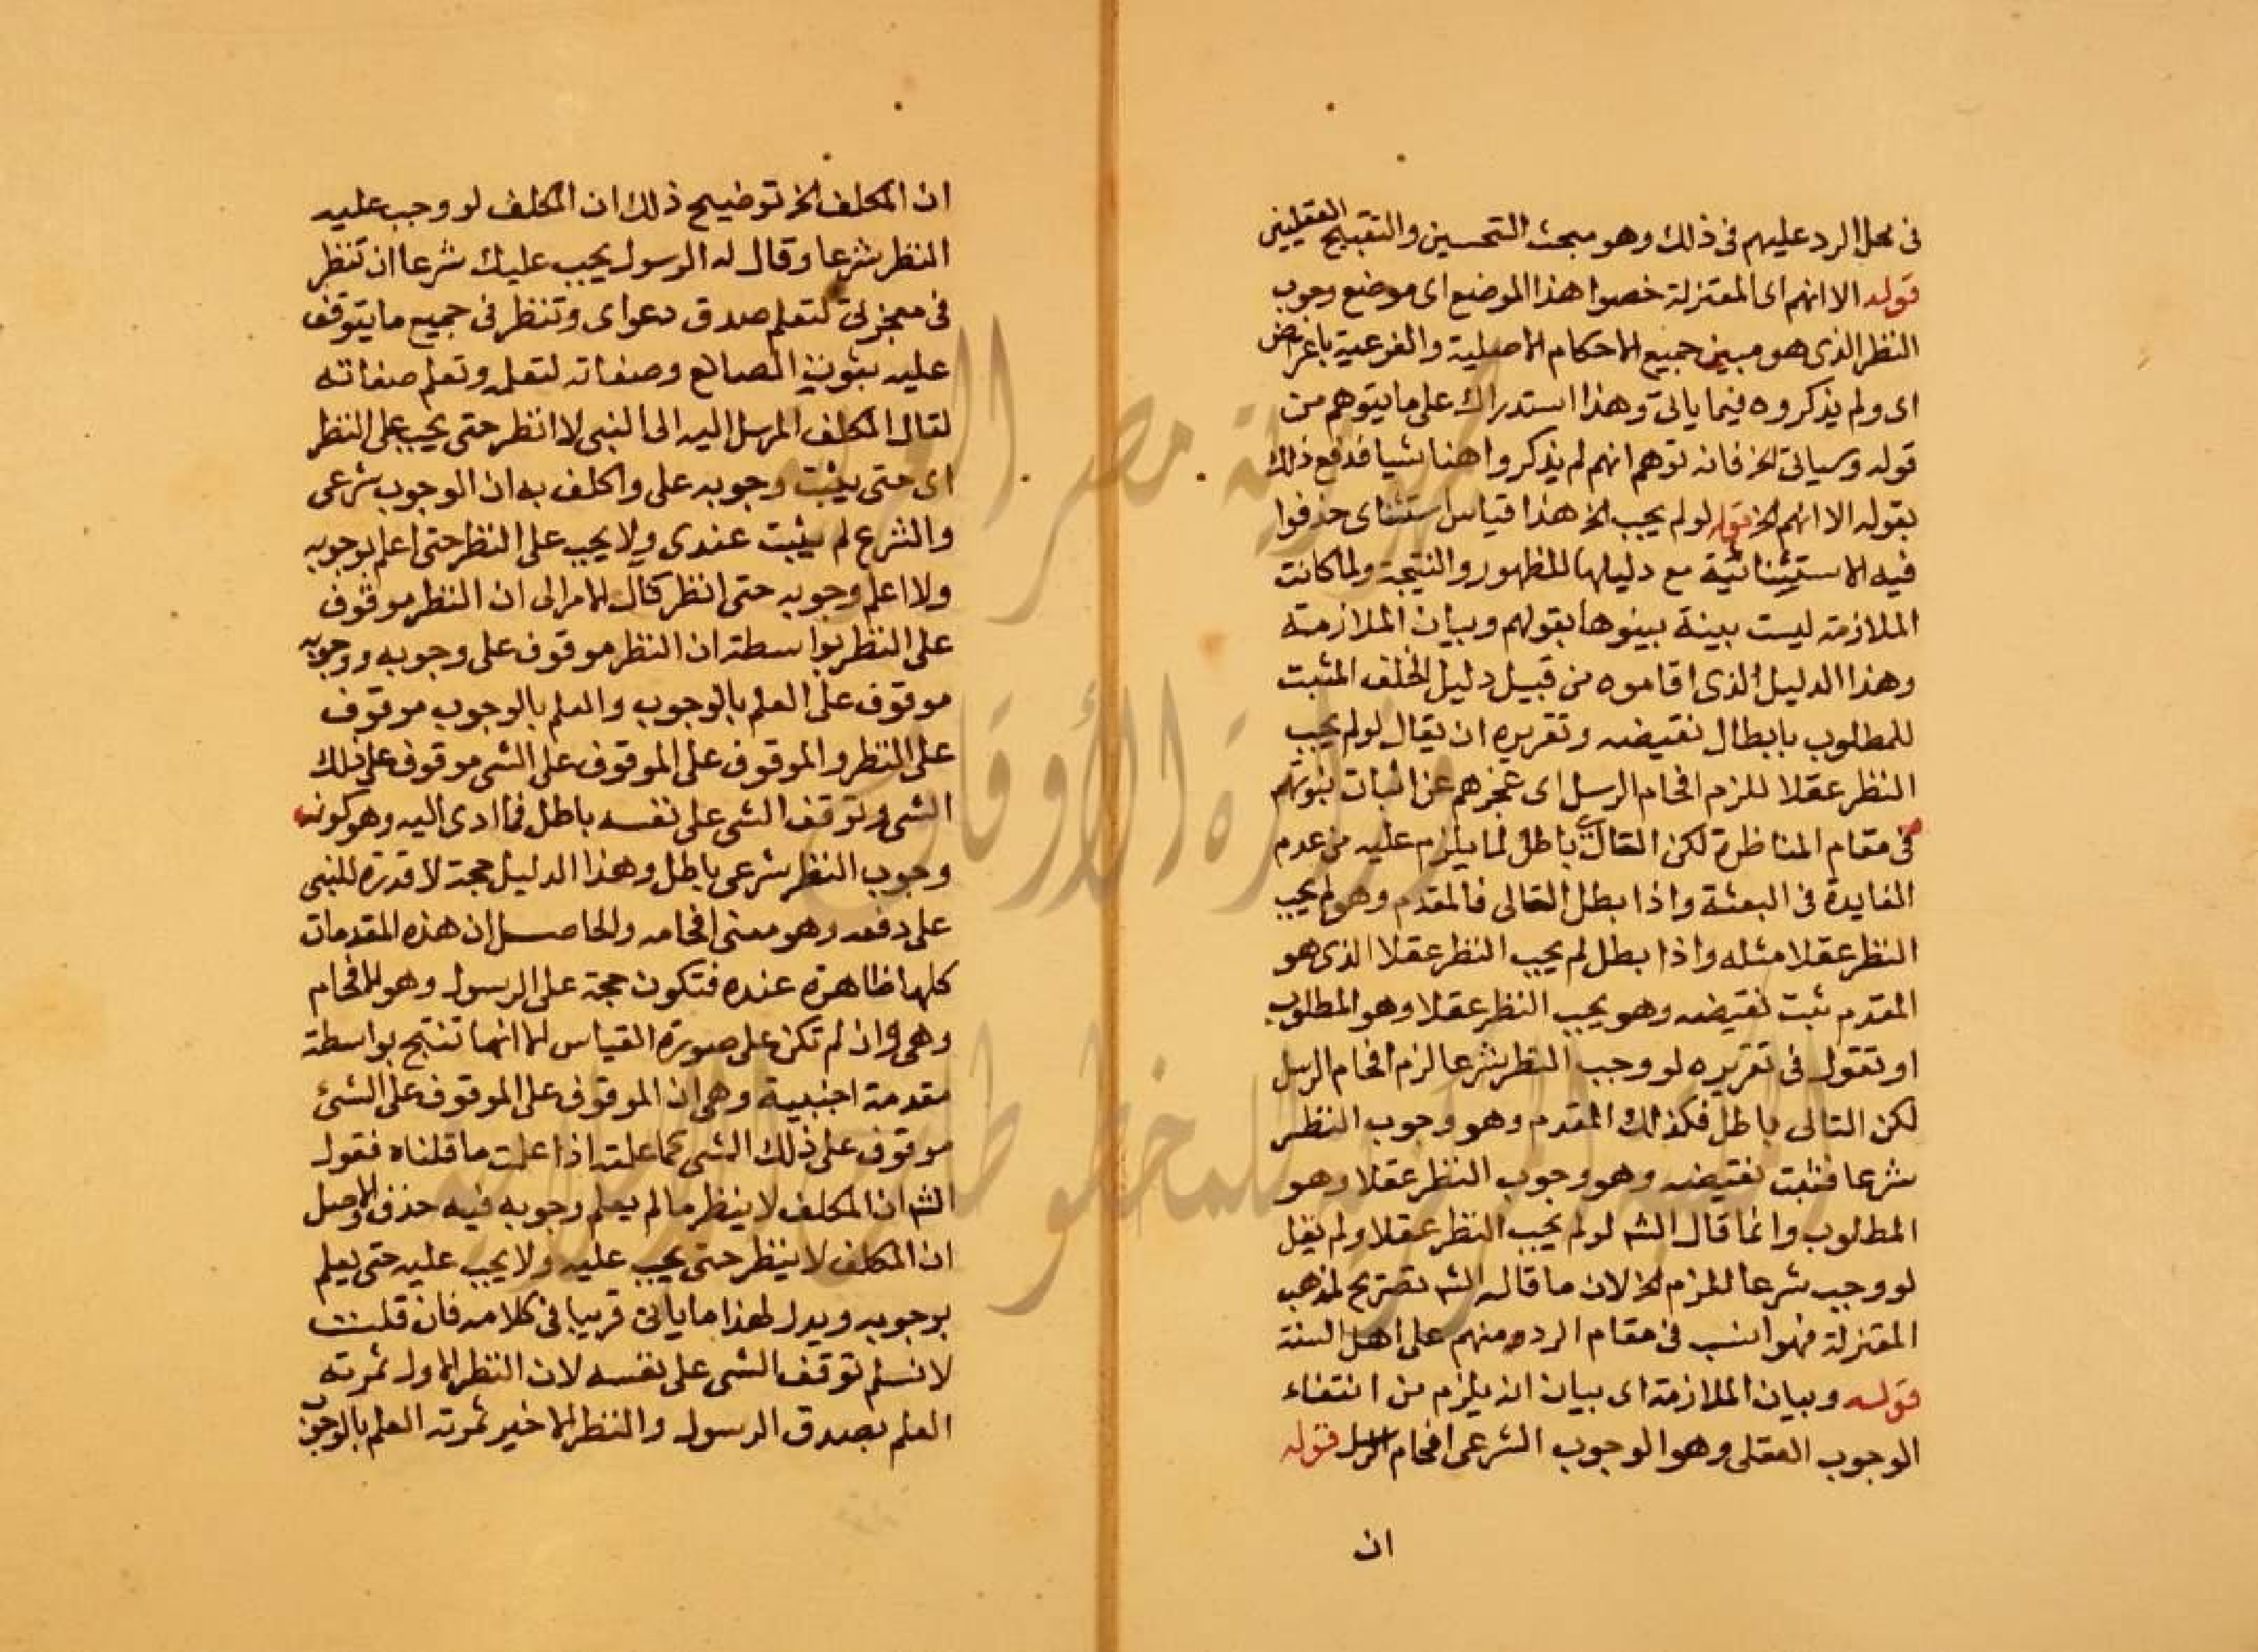 فى محل الرد عليهم فى ذلك وهو مبحث التحسين والتقبيح العقليين
قوله الا انهم اى المعتزلة خصوا هذا الموضع اى موضع وجوب
النظر الذى هو مبنى جميع الاحكام الاصلية والفرعية باعراض
اى ولم يذكروه فيما ياتى وهذا استدراك على ما يتوهم من
قوله وسياتى الخ فانه توهم انهم لم يذكروا هنا شيا فدفع ذلك
بقوله الا انهم الخ قوله لو لم يجب الخ هذا قياس استثناى حذفوا
فيه الاستثنائية مع دليلها للظهور والنتيجة ولما كانت
الملازمة ليست بينة بينوها بقولهم وبيان الملازمة
وهذا الدليل الذى اقاموه من قبيل دليل الخلف المثبت
للمطلوب بابطال نقيضه وتقريره ان يقال لو لم يجب
النظر عقلا للزم افحام الرسل اى عجزهم عن اثبات نبوتهم
فى مقام المناظرة لكن التالى باطل لما يلزم عليه من عدم
الفايدة فى البعثة واذا بطل التالى فالمقدم وهو لم يجب
النظر عقلا مثله واذا بطل لم يجب النظر عقلا الذى هو
المقدم ثبت نقيضه وهو يجب النظر عقلا وهو المطلوب
او تقول فى تقريره لو وجب النظر شرعا لزم افحام الرسل
لكن التالى باطل فكذلك المقدم وهو وجوب النظر
شرعا فثبت نقيضه وهو وجوب النظر عقلا وهو
المطلوب وانما قال الشم لو لم يجب النظر عقلا ولم يقل
لو وجب شرعا للزم الخ لان ما قاله الشم تصريح لمذهب
المعتزلة فهو انسب فى مقام الرد منهم على اهل السنة
قوله وبيان الملازمة اى بيان انه يلزم من انتفاء
الوجوب العقلى وهو الوجوب الشرعى افحام الرسل قوله
ان
ان المكلف الخ توضيح ذلك ان المكلف لو وجب عليه
النظر شرعا وقال له الرسول يجب عليك شرعا ان تنظر
فى معجزتى لتعلم صدق دعواى وتنظر فى جميع ما يتوقف
عليه ثبوت الصانع وصفاته لتعلمه وتعلم صفاته
لقال المكلف المرسل اليه الى النبى لا انظر حتى يجب على النظر
اى حتى يثبت وجوبه على واكلف به ان الوجوب شرعى
والشرع لم يثبت عندى ولا يجب على النظر حتى اعلم بوجوبه
ولا اعلم وجوبه حتى انظر كال الامر الى ان النظر موقوف
على النظر بواسطة ان النظر موقوف على وجوبه ووجوبه
موقوف على العلم بالوجوب والعلم بالوجوب موقوف
على النظر والموقوف على الموقوف على الشى موقوف على ذلك
الشى وتوقف الشى على نفسه باطل فما ادى اليه وهو كون
وجوب النظر شرعى باطل وهذا الدليل حجة لا قدرة للنبى
على دفعه وهو معنى افحامه والحاصل ان هذه المقدمات
كلها ظاهرة عنده فتكون حجة على الرسول وهو الافحام
وهى وان لم تكن على صورة القياس الا انها تنتج بواسطة
مقدمة اجنبية وهى ان الموقوف على الموقوف على الشئ
موقوف على ذلك الشى كما علمته اذا علمت ما قلناه فقول
الشم ان المكلف لا ينظر ما لم يعلم وجوبه فيه حذف والاصل
ان المكلف لا ينظر حتى يجب عليه ولا يجب عليه حتى يعلم
بوجوبه ويدل لهذا ما ياتى قريبا فى كلامه فان قلت
لا نسلم توقف الشى على نفسه لان النظر الاول ثمرته
العلم بصدق الرسول والنظر الاخير ثمرته العلم بالوجوب